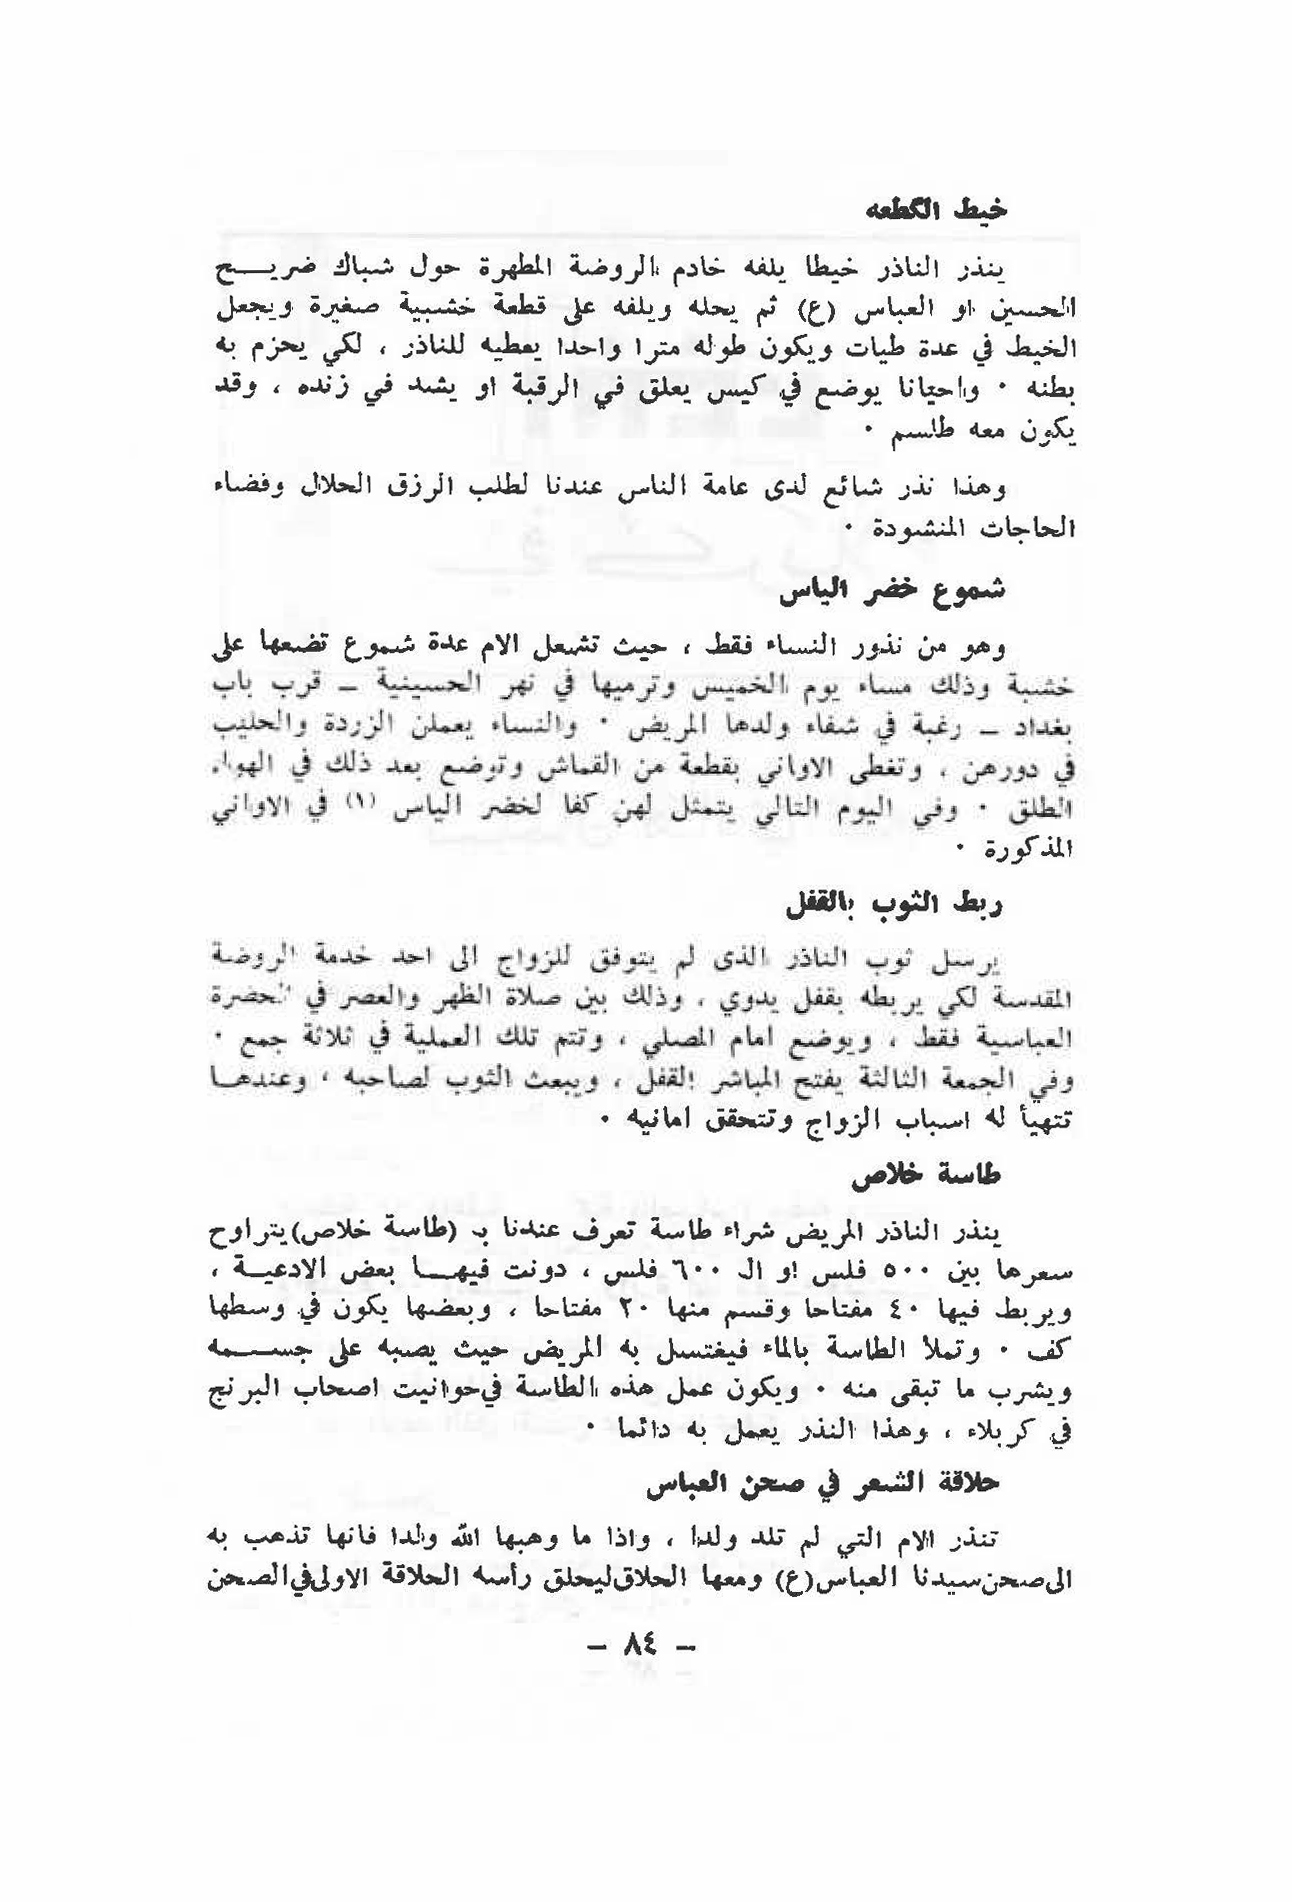 خيط الگطعه
ينذر الناذر خيطا يلفه خادم الروضة المطهرة حول شباك ضريـــح
الحسين او العباس (ع) ثم يحله ويلفه على قطعة خشبية صغيرة ويجعل
الخيط في عدة طيات ويكون طوله مترا واحدا يعطيه للناذر ، لكي يحزم به
بطنه ٠ واحيانا يوضع في كيس يعلق في الرقبة او يشد في زنده ، وقد
يكون معه طلسم ٠
وهذا نذر شائع لدى عامة الناس عندنا لطلب الرزق الحلال وفضاء
الحاجات المنشودة ٠
شموع خضر الياس
وهو من نذور النساء فقط ، حيث تشعل الام عدة شموع تضعها على
خشبة وذلك مساء يوم الخميس وترميها في نهر الحسينية – قرب باب
بغداد – رغبة في شفاء ولدها المريض ٠ والنساء يعملن الزردة والحليب
في دورهن ، وتغطى الاواني بقطعة من القماش وتوضع بعد ذلك في الهواء
الطلق ٠ وفي اليوم التالي يتمثل لهن كفا لخضر الياس (١) في الاواني
المذكورة ٠
ربط الثوب بالقفل
يرسل ثوب الناذر الذى لم يتوفق للزواج الى احد خدمة الروضة
المقدسة لكي يربطه بقفل يدوي ، وذلك بين صلاة الظهر والعصر في الحضرة
العباسية فقط ، ويوضع امام المصلي ، وتتم تلك العملية في ثلاثة جمع ٠
وفي الجمعة الثالثة يفتح المباشر القفل ، ويبعث الثوب لصاحبه ، وعندهـا
تتهيأ له اسباب الزواج وتتحقق امانيه ٠
طاسة خلاص
ينذر الناذر المريض شراء طاسة تعرف عندنا بـ (طاسة خلاص) يتراوح
سعرها بين ٥٠٠ فلس او ال ٦٠٠ فلس ، دونت فيهـــا بعض الادعيـــة ،
ويربط فيها ٤٠ مفتاحا وقسم منها ٢٠ مفتاحا ، وبعضها يكون في وسطها
كف ٠ وتملأ الطاسة بالماء فيغتسل به المريض حيث يصبه على جســـمه
ويشرب ما تبقى منه ٠ ويكون عمل هذه الطاسة في حوانيت اصحاب البرنج
في كربلاء ، وهذا النذر يعمل به دائما ٠
حلاقة الشعر في صحن العباس
تنذر الام التي لم تلد ولدا ، واذا ما وهبها الله ولدا فانها تذهب به
الى صحن سيدنا العباس (ع) ومعها الحلاق ليحلق رأسه الحلاقة الاولى في الصحن
– ٨٤ –